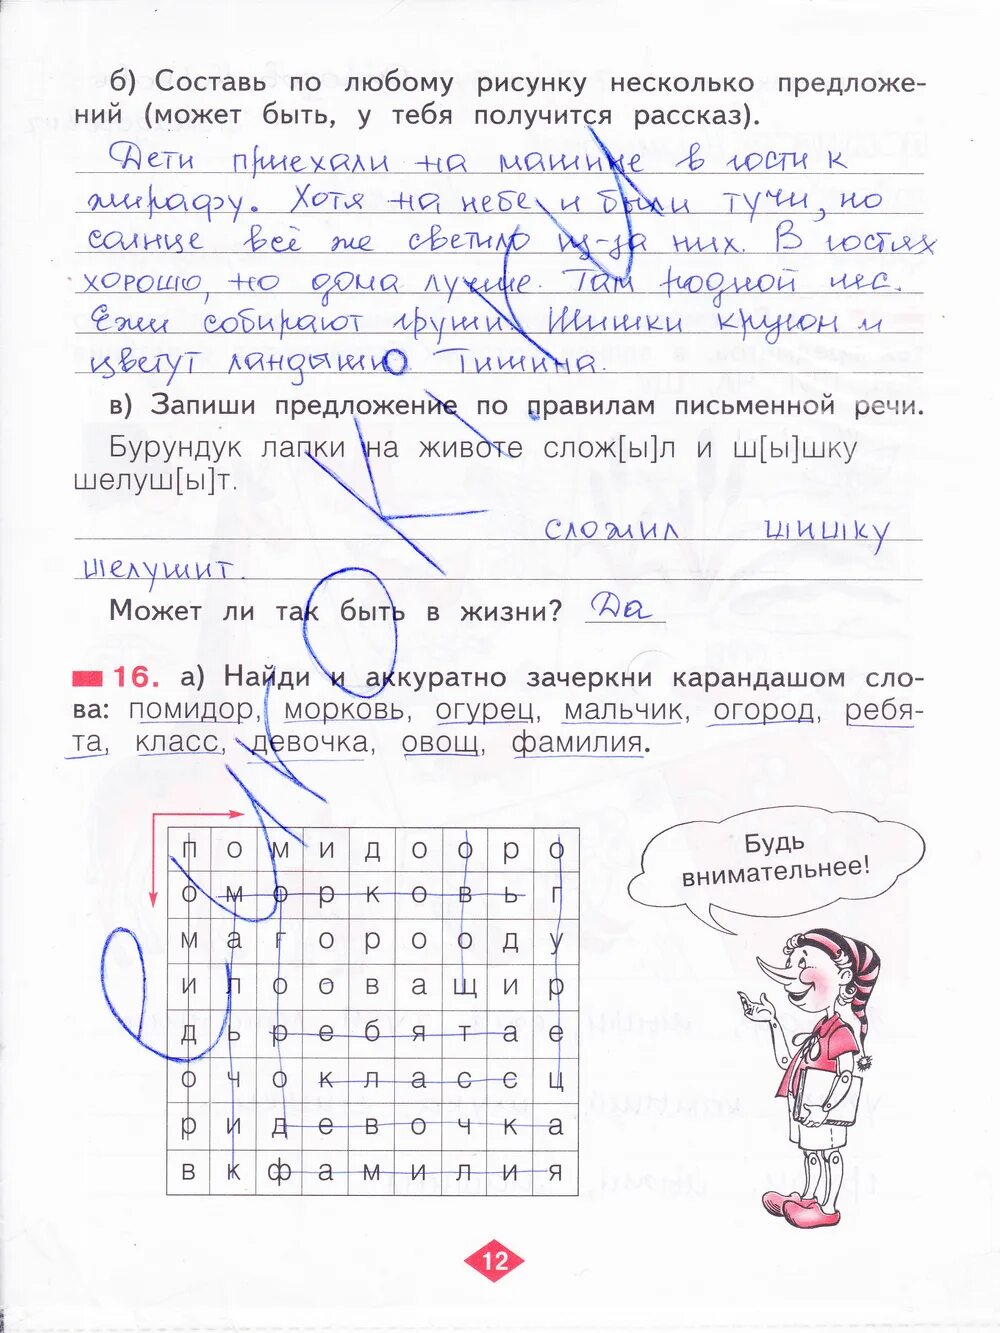 б) Составь по любому рисунку несколько предложе-
ний (может быть, у тебя получится рассказ).
Дети приехали на машине в гости к
жирафу. Хотя на небе и были тучи, но
солнце всё же светило из-за них. В гостях
хорошо, но дома лучше. Там родной лес.
Ежи собирают груши. Шишки кругом и
цветут ландыши. Тишина.
в) Запиши предложение по правилам письменной речи.
Бурундук лапки на животе слож[ы]л и ш[ы]шку
шелуш[ы]т.
сложил шишку
шелушит.
Может ли так быть в жизни? Да
16. а) Найди и аккуратно зачеркни карандашом сло-
ва: помидор, морковь, огурец, мальчик, огород, ребя-
та, класс, девочка, овощ, фамилия.
Будь
внимательнее!
п о м и д о о р о
о м о р к о в ь г
м а г о р о о д у
и л о о в а щ и р
д ь р е б я т а е
о ч о к л а с с ц
р и д е в о ч к а
в к ф а м и л и я
12